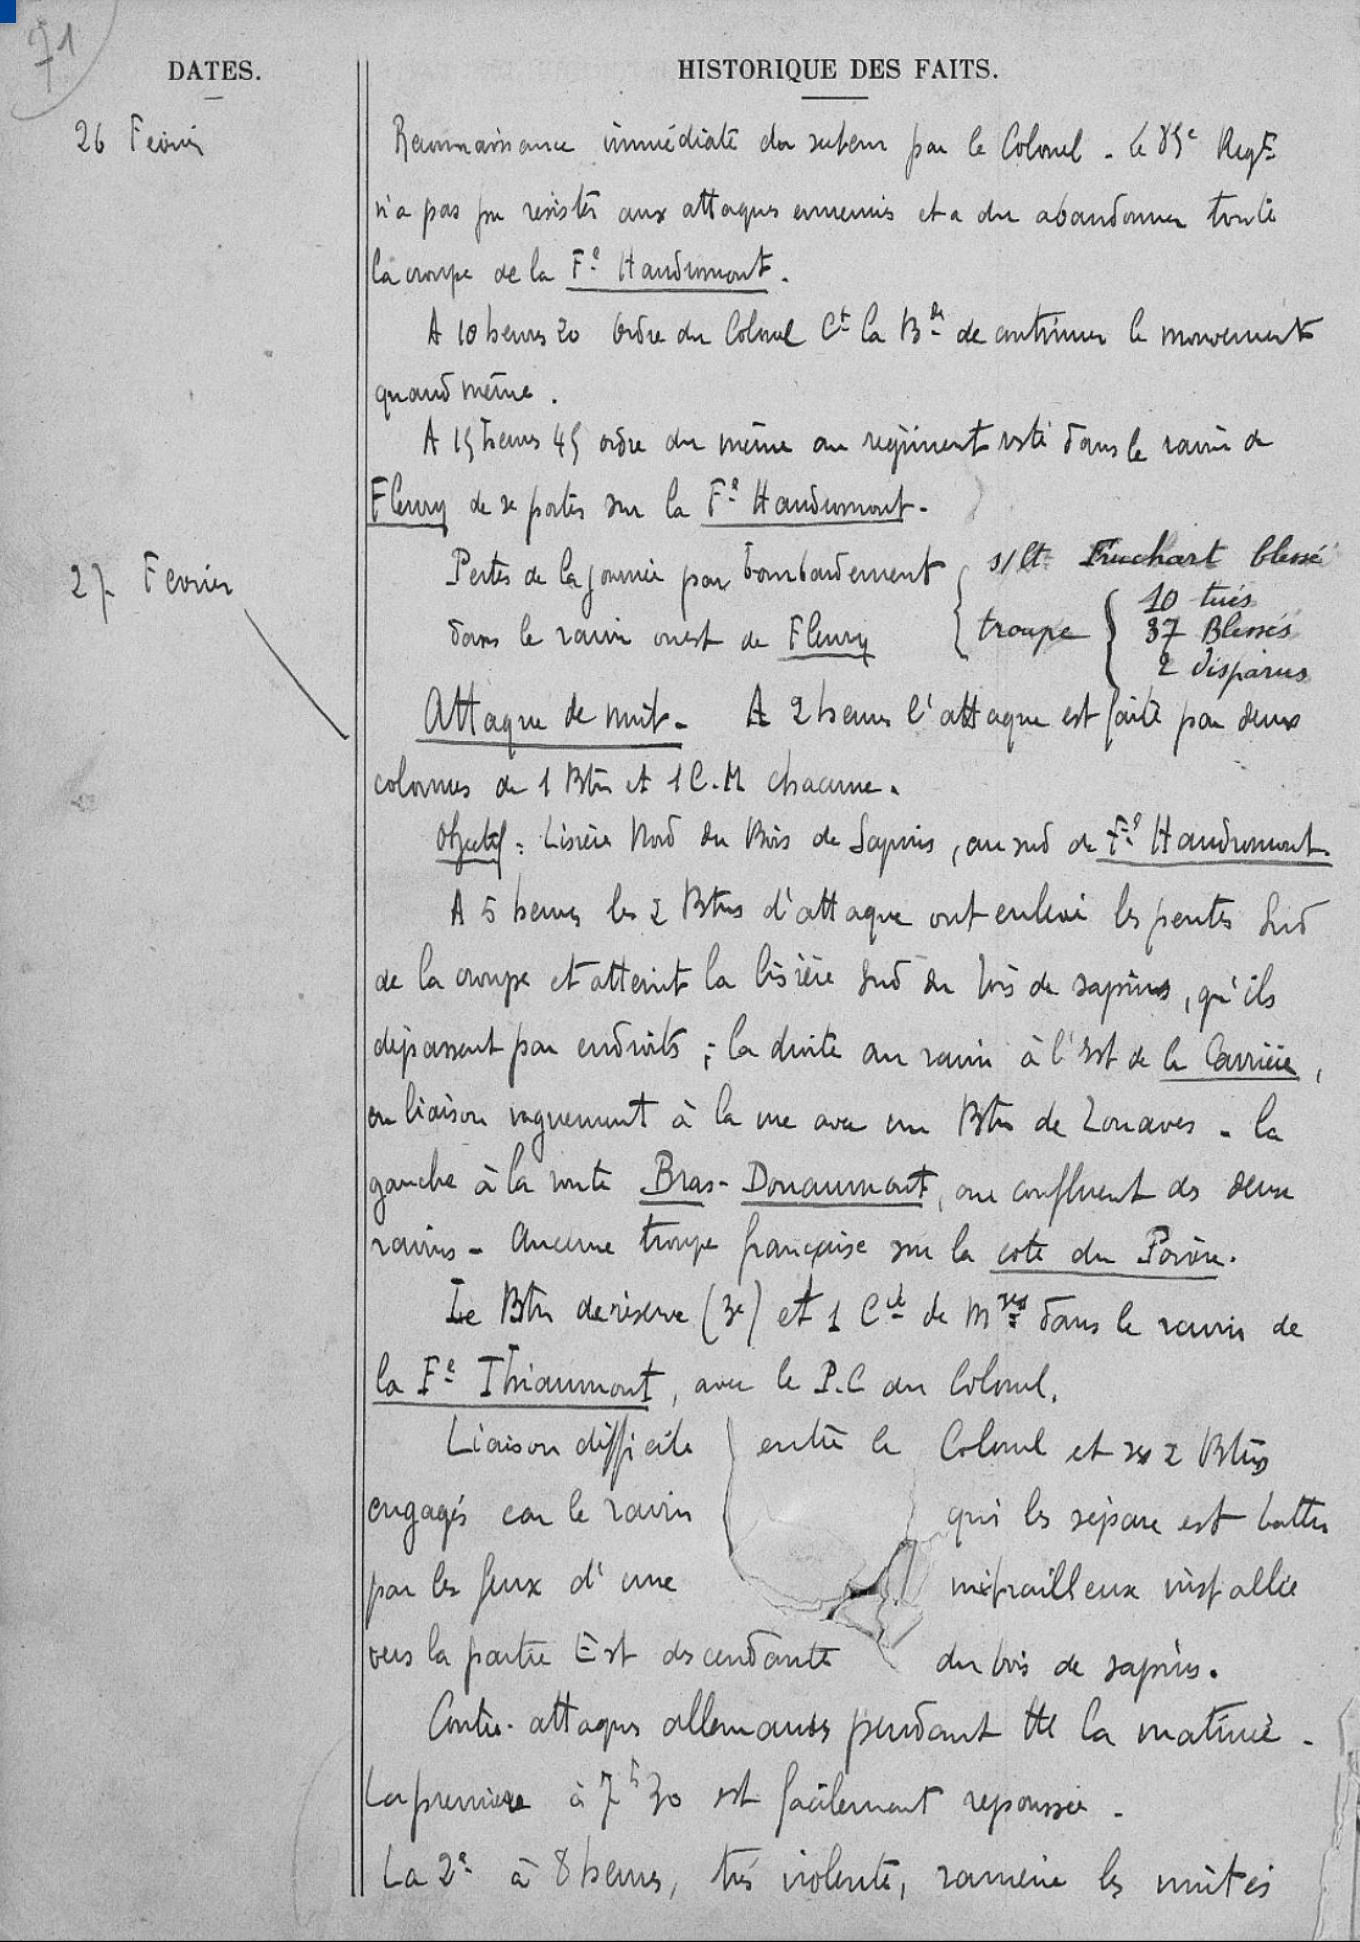 71
DATES.
HISTORIQUE DES FAITS.
26 Février
Reconnaissance immédiate du secteur par le Colonel - Le 85e Regt
n'a pas pu resister aux attaques ennemies et a du abandonner toute
la croupe de la Fe Haudromont.
A 10 heures 20 Ordre du Colonel Ct la Bde de continuer le mouvement
quand même.
A 15 heures 45 ordre du même au régiment resté dans le ravin de
Fleury de se porter sur la Fe Haudromont.
27 Fevrier
Pertes de la journée par bombardement
dans le ravin ouest de Fleury
s/lt Fruchart blessé
troupe
10 tués
37 Blessés
2 disparus
Attaque de nuit - A 2 heures l'attaque est faite par deux
colonnes de 1 Btn et 1 C.M chacune.
Objectif : Lisière Nord du Bois de Sapins, au sud de Fe Haudromont.
A 5 heures les 2 Btns d'attaque ont enlevé les pentes Sud
de la croupe et atteint la lisière Sud du bois de sapins, qu'ils
dépassent par endroits ; la droite au ravin à l'Est de la Carrière,
en liaison vaguement à la vue avec un Btn de Zouaves - la
gauche à la route Bras-Douaumont, au confluent des deux
ravins - Aucune troupe française sur la cote du Poivre.
Le Btn de réserve (3e) et 1 Cie de Mses dans le ravin de
la Fe Thiaumont, avec le P.C du Colonel.
Liaison difficile entre le Colonel et ses 2 Btns
engagés car le ravin qui les sépare est battu
par les feux d'une mitrailleuse installée
vers la partie Est descendante du bois de sapins.
Contre-attaques allemandes pendant tte la matinée.
La première à 7h30 est facilement repoussée.
La 2e à 8 heures, très violente, ramène les unités